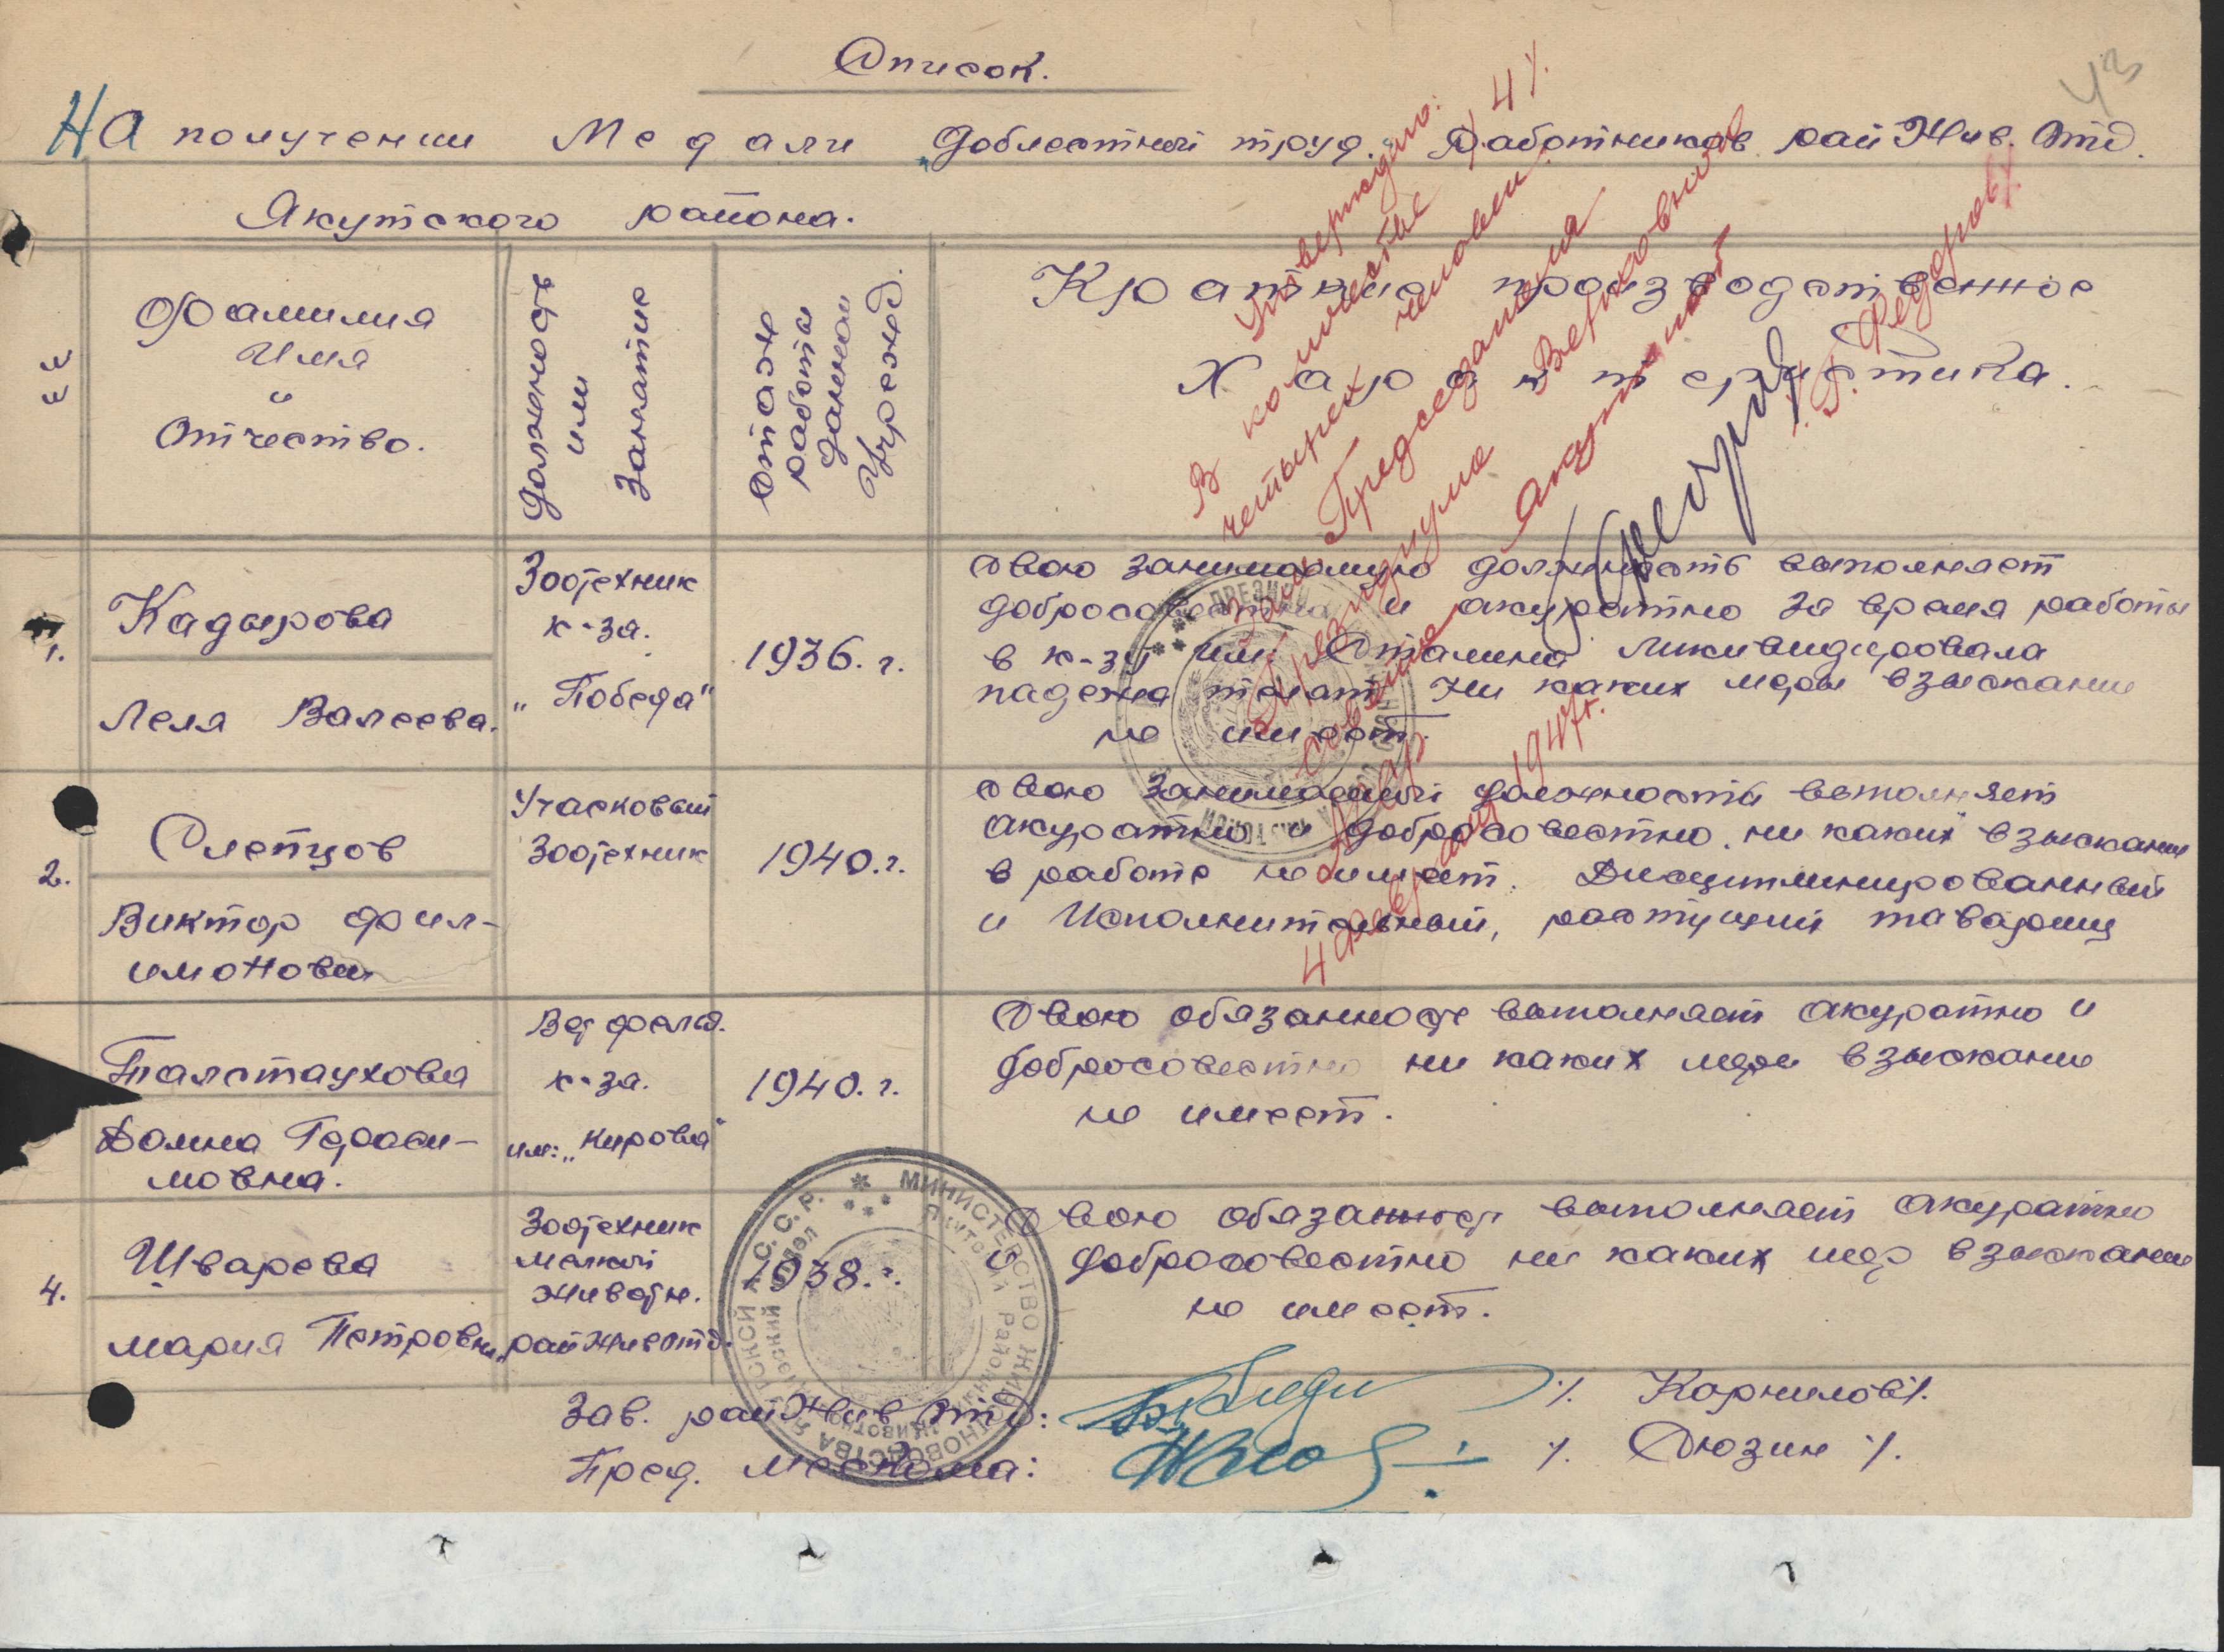 Список.
43
На получении Медали „Доблестный труд." Работников рай Жив. Отд.
Якутского района.
Фамилия
Имя
и
Отчество.
Должность
или
Занятие
Стаж
работы
данном
Учрежд.
Краткие производственное
Характеристика.
Утверждаю:
В количестве /4/
четырех человек.
Зам. Председателя
Президиума Верховного
Совета Якутской
АССР
/Г. Федоров/
4 февраля 1947 г.
1.
Кадырова
Леля Валеева.
Зоотехник
к-за.
„Победа"
1936. г.
Свою занимаемую должность выполняет
добросовестно и акуратно за время работы
в к-зу им: Сталина ликивидировала
падежа телят. Ни каких меры взыскание
не имеет.
2.
Слепцов
Виктор Фил-
имонович
Учасковый
Зоотехник
1940. г.
Свою Занимаемый должность выполняет
акуратно и добросовестно. ни каких взыскание
в работе не имеет. Дисциплинированный
и Исполнительный, растущий таварищ
Талстаухова
Домна Гераси-
мовна.
Вет фельд.
к-за.
им: „Кирова"
1940. г.
Свою обязанность выполняет акуратно и
добросовестно ни каких меры взыскание
не имеет.
4.
Шварева
Мария Петровна
Зоотехник
мелкий
животн.
райживотд.
1938. г.
Свою обязанность выполняет акуратно
и добросовестно ни каких мер взыскание
не имеет.
МИНИСТЕРСТВО ЖИВОТНОВОДСТВА ЯКУТСКОЙ А.С.С.Р.
Зав. рай Жив Отд: /. Корнилов/.
Пред. Месткома: /. Сюзин /.